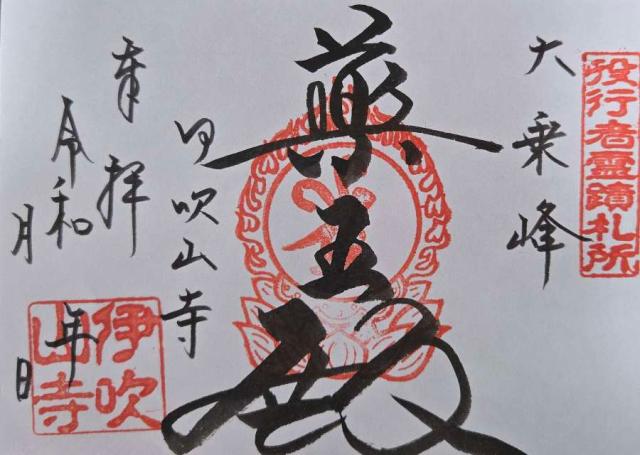 役行者霊蹟札所
大乗峰
薬王殿
伊吹山寺
奉拝
令和 年
月 日
伊吹山寺